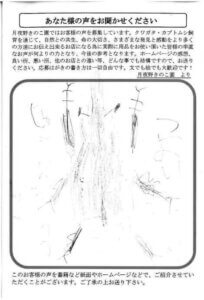 あなた様の声をお聞かせください
月夜野きのこ園ではお客様の声を募集しています。クワガタ・カブトムシ飼
育を通じて、自然との共生、命の大切さ、さまざまな発見と感動をより多く
の方法にお伝え出来るお店になる為に実際に商品をお使い頂いた皆様の率直
なお声が何よりの力となり、今後の参考となります。ホームページの感想、
良い所、悪い所、他のお店との違い等、どんな事でも結構ですので、お送り
ください。応募はがきの書き方は一切自由です。文でも絵でも大歓迎です!
月夜野きのこ園 より
このお客様の声を書籍など紙面やホームページなどで、ご紹介させてい
ただくことがございます。ご了承の上お送り下さい。